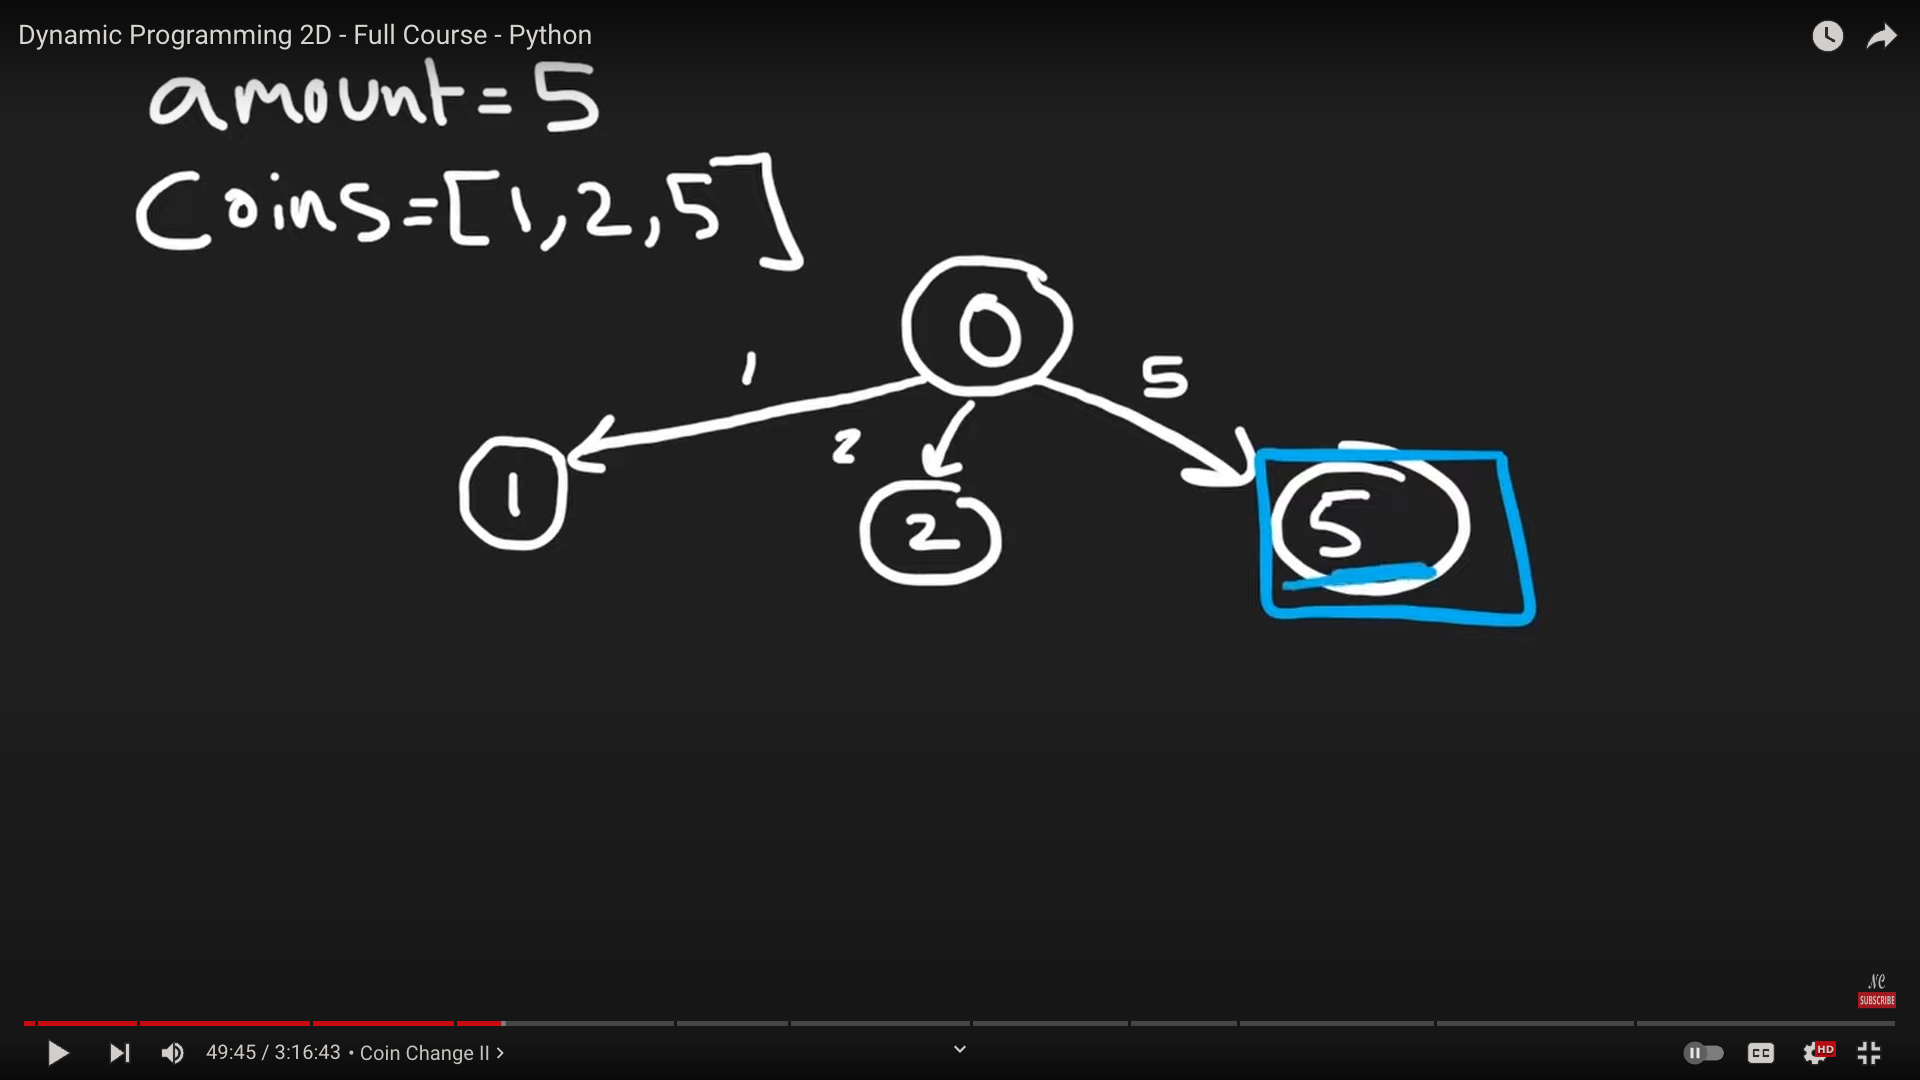 Dynamic Programming 2D - Full Course - Python
amount = 5
Coins = [1, 2, 5]
0
1
5
2
1
2
5
NC
SUBSCRIBE
49:45 / 3:16:43 • Coin Change II >
CC
HD